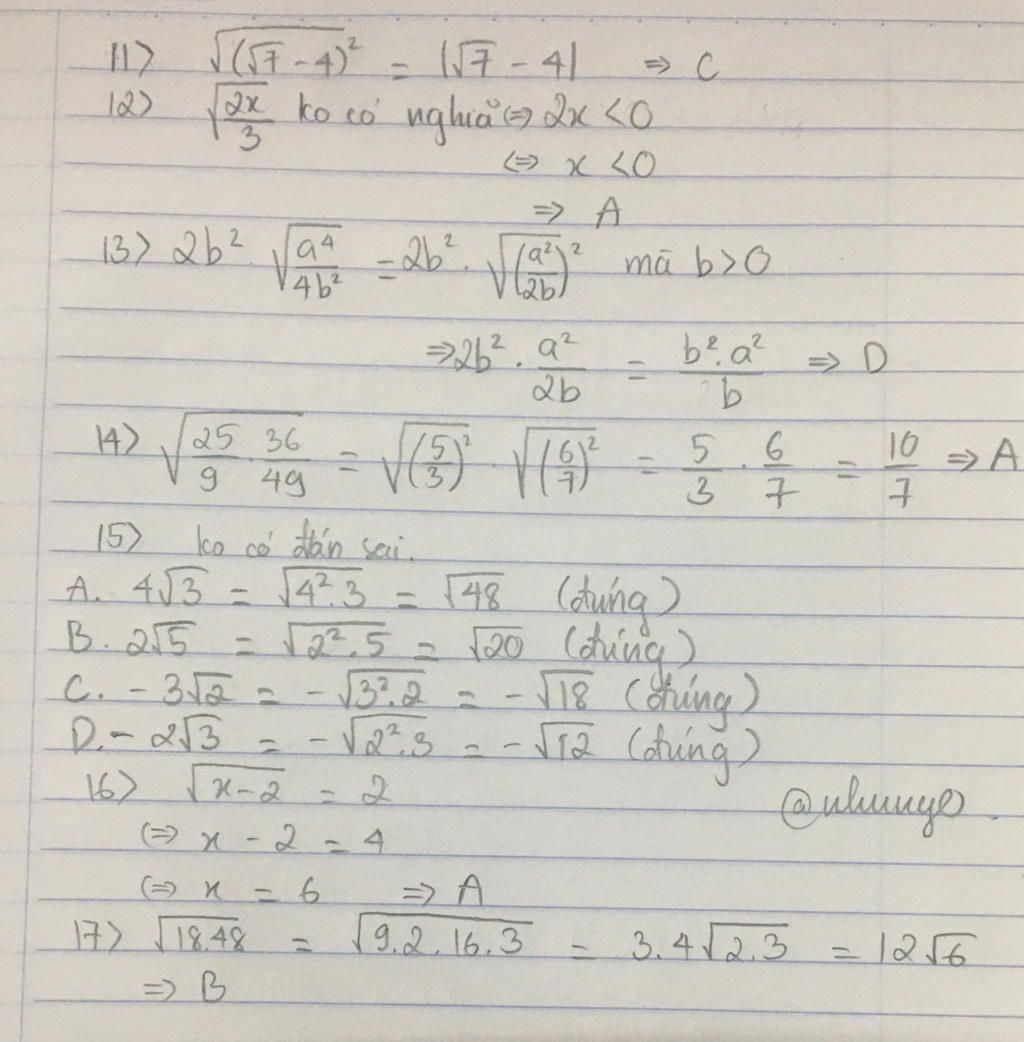 11> √(√7-4)² = |√7 - 4| ⇒ C
12> √2x/3 ko có nghĩa ⇔ 2x < 0
⇔ x < 0
⇒ A
13> 2b² . √a⁴/4b² = 2b² . √(a²/2b)² mà b > 0
⇒ 2b² . a²/2b = b².a²/b ⇒ D
14> √25/9 . 36/49 = √(5/3)² . √(6/7)² = 5/3 . 6/7 = 10/7 ⇒ A
15> ko có đán sai.
A. 4√3 = √4².3 = √48 (đúng)
B. 2√5 = √2².5 = √20 (đúng)
C. - 3√2 = -√3².2 = -√18 (đúng)
D. - 2√3 = -√2².3 = -√12 (đúng)
16> √x-2 = 2
⇔ x - 2 = 4
⇔ x = 6 ⇒ A
17> √18.48 = √9.2.16.3 = 3.4√2.3 = 12√6
⇒ B